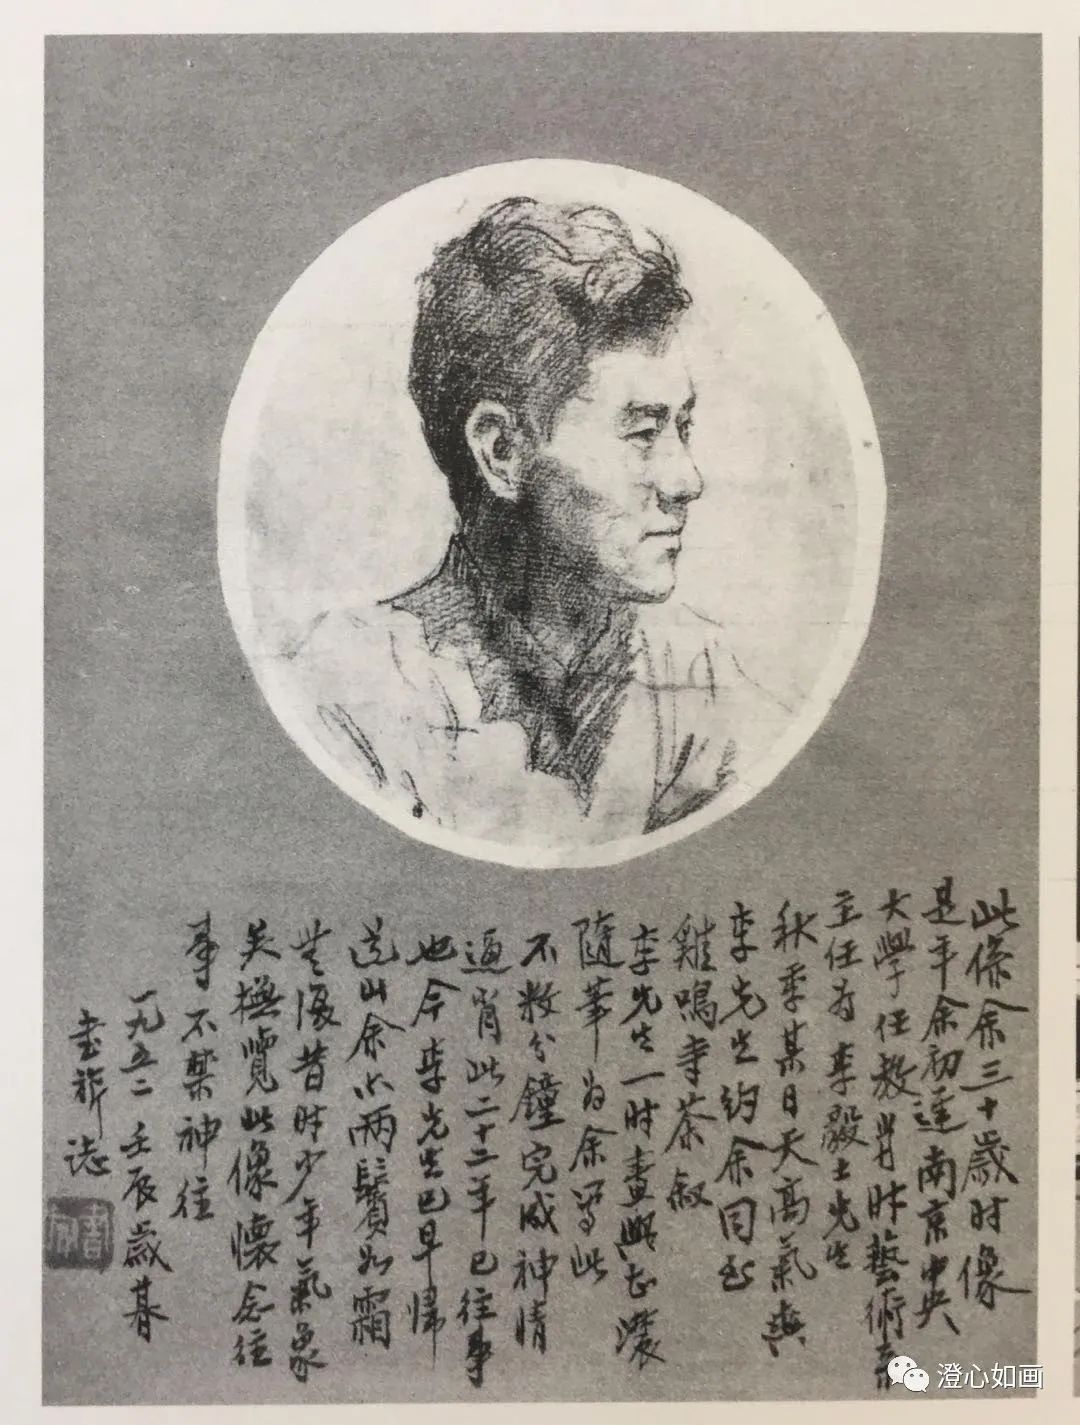 此係余三十歲时像
是年余初達南京中央
大學任教当时藝術系
主任为李毅士先生
秋季某日天高氣爽
李先生约余同至
雞鳴寺茶叙
李先生一时畫興甚濃
隨筆为余写此
不数分鐘完成神情
逼肖此二十二年已往事
也今李先生已早歸
道山余亦两鬢如霜
無復昔时少年氣象
矣撫覽此像懷念往
事不禁神往
一九五二壬辰歲暮
書旂誌
書旂
澄心如画